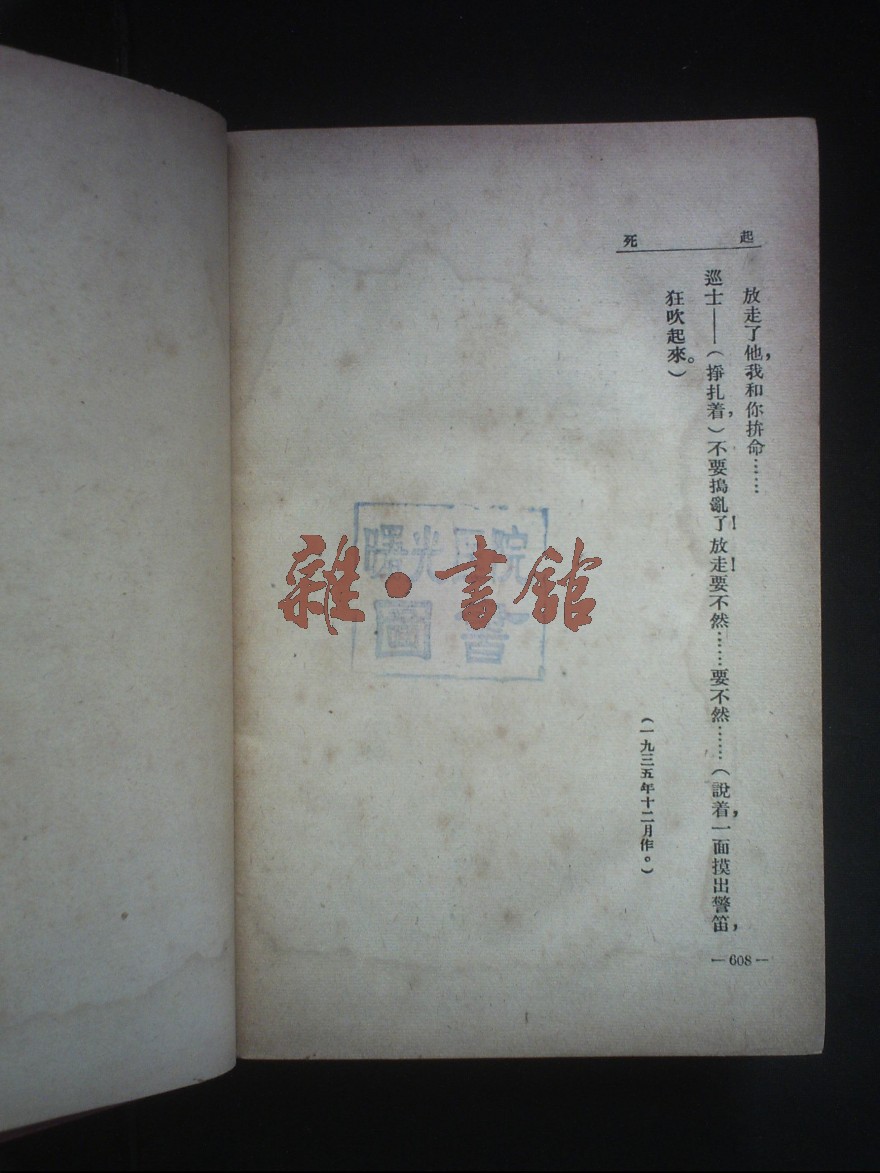 起死
放走了他，我和你拚命……
巡士——（掙扎着，）不要搗亂了！放走！要不然……要不然……（說着，一面摸出警笛，
狂吹起來。）
（一九三五年十二月作。）
— 608 —
曙光院
圖書
雜·書舘